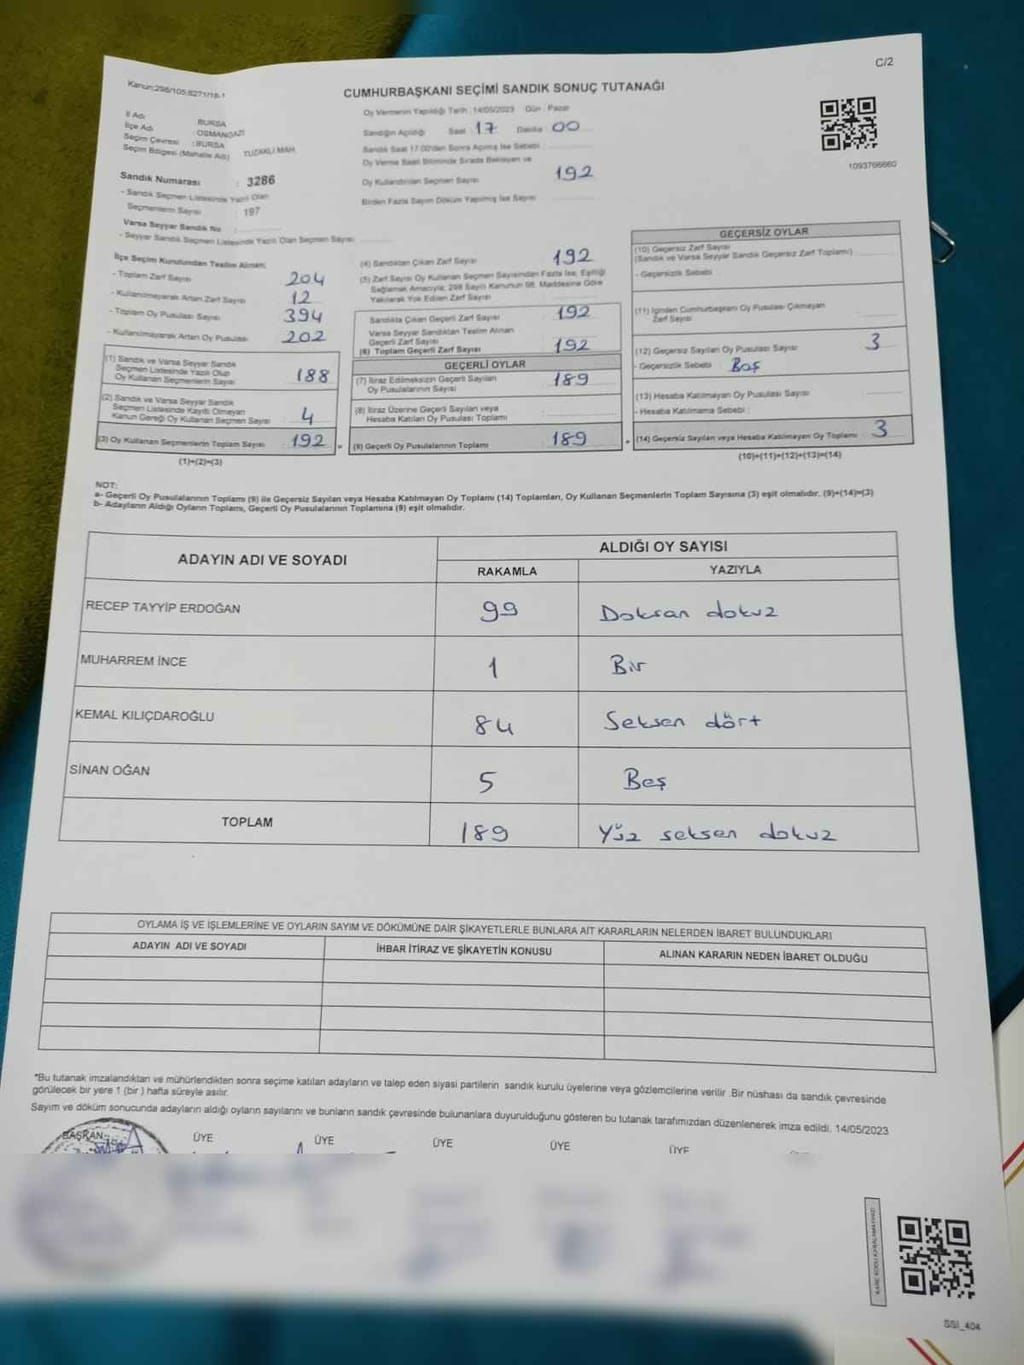 Kanun:298/105;6271/18-1
C/2
CUMHURBAŞKANI SEÇİMİ SANDIK SONUÇ TUTANAĞI
İl Adı BURSA
İlçe Adı : OSMANGAZİ
Seçim Çevresi : BURSA
Seçim Bölgesi (Mahalle Adı) YUZAKLI MAH.
Sandık Numarası : 3286
- Sandık Seçmen Listesinde Yazılı Olan
Seçmenlerin Sayısı : 197
Varsa Seyyar Sandık No
- Seyyar Sandık Seçmen Listesinde Yazılı Olan Seçmen Sayısı
Oy Vermenin Yapıldığı Tarih : 14/05/2023 Gün : Pazar
Sandığın Açıldığı Saat 17 Dakika 00
Sandık Saat 17:00'den Sonra Açılmış İse Sebebi
Oy Verme Saati Bitiminde Sırada Bekleyen ve
Oy Kullandırılan Seçmen Sayısı 192
Birden Fazla Sayım Döküm Yapılmış İse Sayısı
1093766660
İlçe Seçim Kurulundan Teslim Alınan:
- Toplam Zarf Sayısı 204
- Kullanılmayarak Artan Zarf Sayısı 12
- Toplam Oy Pusulası Sayısı 394
- Kullanılmayarak Artan Oy Pusulası 202
(1) Sandık ve Varsa Seyyar Sandık
Seçmen Listesinde Yazılı Olup
Oy Kullanan Seçmenlerin Sayısı 188
(2) Sandık ve Varsa Seyyar Sandık
Seçmen Listesinde Kayıtlı Olmayan
Kanun Gereği Oy Kullanan Seçmen Sayısı 4
(3) Oy Kullanan Seçmenlerin Toplam Sayısı 192
(1)+(2)=(3)
(4) Sandıktan Çıkan Zarf Sayısı 192
(5) Zarf Sayısı Oy Kullanan Seçmen Sayısından Fazla İse, Eşitliği
Sağlamak Amacıyla; 298 Sayılı Kanunun 98. Maddesine Göre
Yakılarak Yok Edilen Zarf Sayısı
Sandıkta Çıkan Geçerli Zarf Sayısı 192
Varsa Seyyar Sandıktan Teslim Alınan
Geçerli Zarf Sayısı
(6) Toplam Geçerli Zarf Sayısı 192
GEÇERLİ OYLAR
(7) İtiraz Edilmeksizin Geçerli Sayılan
Oy Pusulalarının Sayısı 189
(8) İtiraz Üzerine Geçerli Sayılan veya
Hesaba Katılan Oy Pusulası Toplamı
(9) Geçerli Oy Pusulalarının Toplamı 189
GEÇERSİZ OYLAR
(10) Geçersiz Zarf Sayısı
(Sandık ve Varsa Seyyar Sandık Geçersiz Zarf Toplamı)
- Geçersizlik Sebebi
(11) İçinden Cumhurbaşkanı Oy Pusulası Çıkmayan
Zarf Sayısı
(12) Geçersiz Sayılan Oy Pusulası Sayısı 3
- Geçersizlik Sebebi : Boş
(13) Hesaba Katılmayan Oy Pusulası Sayısı
- Hesaba Katılmama Sebebi :
(14) Geçersiz Sayılan veya Hesaba Katılmayan Oy Toplamı 3
(10)+(11)+(12)+(13)=(14)
NOT:
a- Geçerli Oy Pusulalarının Toplamı (9) ile Geçersiz Sayılan veya Hesaba Katılmayan Oy Toplamı (14) Toplamları, Oy Kullanan Seçmenlerin Toplam Sayısına (3) eşit olmalıdır. (9)+(14)=(3)
b- Adayların Aldığı Oyların Toplamı, Geçerli Oy Pusulalarının Toplamına (9) eşit olmalıdır.
ADAYIN ADI VE SOYADI ALDIĞI OY SAYISI
RAKAMLA YAZIYLA
RECEP TAYYİP ERDOĞAN 99 Doksan dokuz
MUHARREM İNCE 1 Bir
KEMAL KILIÇDAROĞLU 84 Seksen dört
SİNAN OĞAN 5 Beş
TOPLAM 189 Yüz seksen dokuz
OYLAMA İŞ VE İŞLEMLERİNE VE OYLARIN SAYIM VE DÖKÜMÜNE DAİR ŞİKAYETLERLE BUNLARA AİT KARARLARIN NELERDEN İBARET BULUNDUKLARI
ADAYIN ADI VE SOYADI İHBAR İTİRAZ VE ŞİKAYETİN KONUSU ALINAN KARARIN NEDEN İBARET OLDUĞU
*Bu tutanak imzalandıktan ve mühürlendikten sonra seçime katılan adayların ve talep eden siyasi partilerin sandık kurulu üyelerine veya gözlemcilerine verilir. Bir nüshası da sandık çevresinde
görülecek bir yere 1 (bir) hafta süreyle asılır.
Sayım ve döküm sonucunda adayların aldığı oyların sayılarını ve bunların sandık çevresinde bulunanlara duyurulduğunu gösteren bu tutanak tarafımızdan düzenlenerek imza edildi. 14/05/2023
BAŞKAN ÜYE ÜYE ÜYE ÜYE ÜYE
KARE KODU KARALAMAYINIZ!
SSI_404